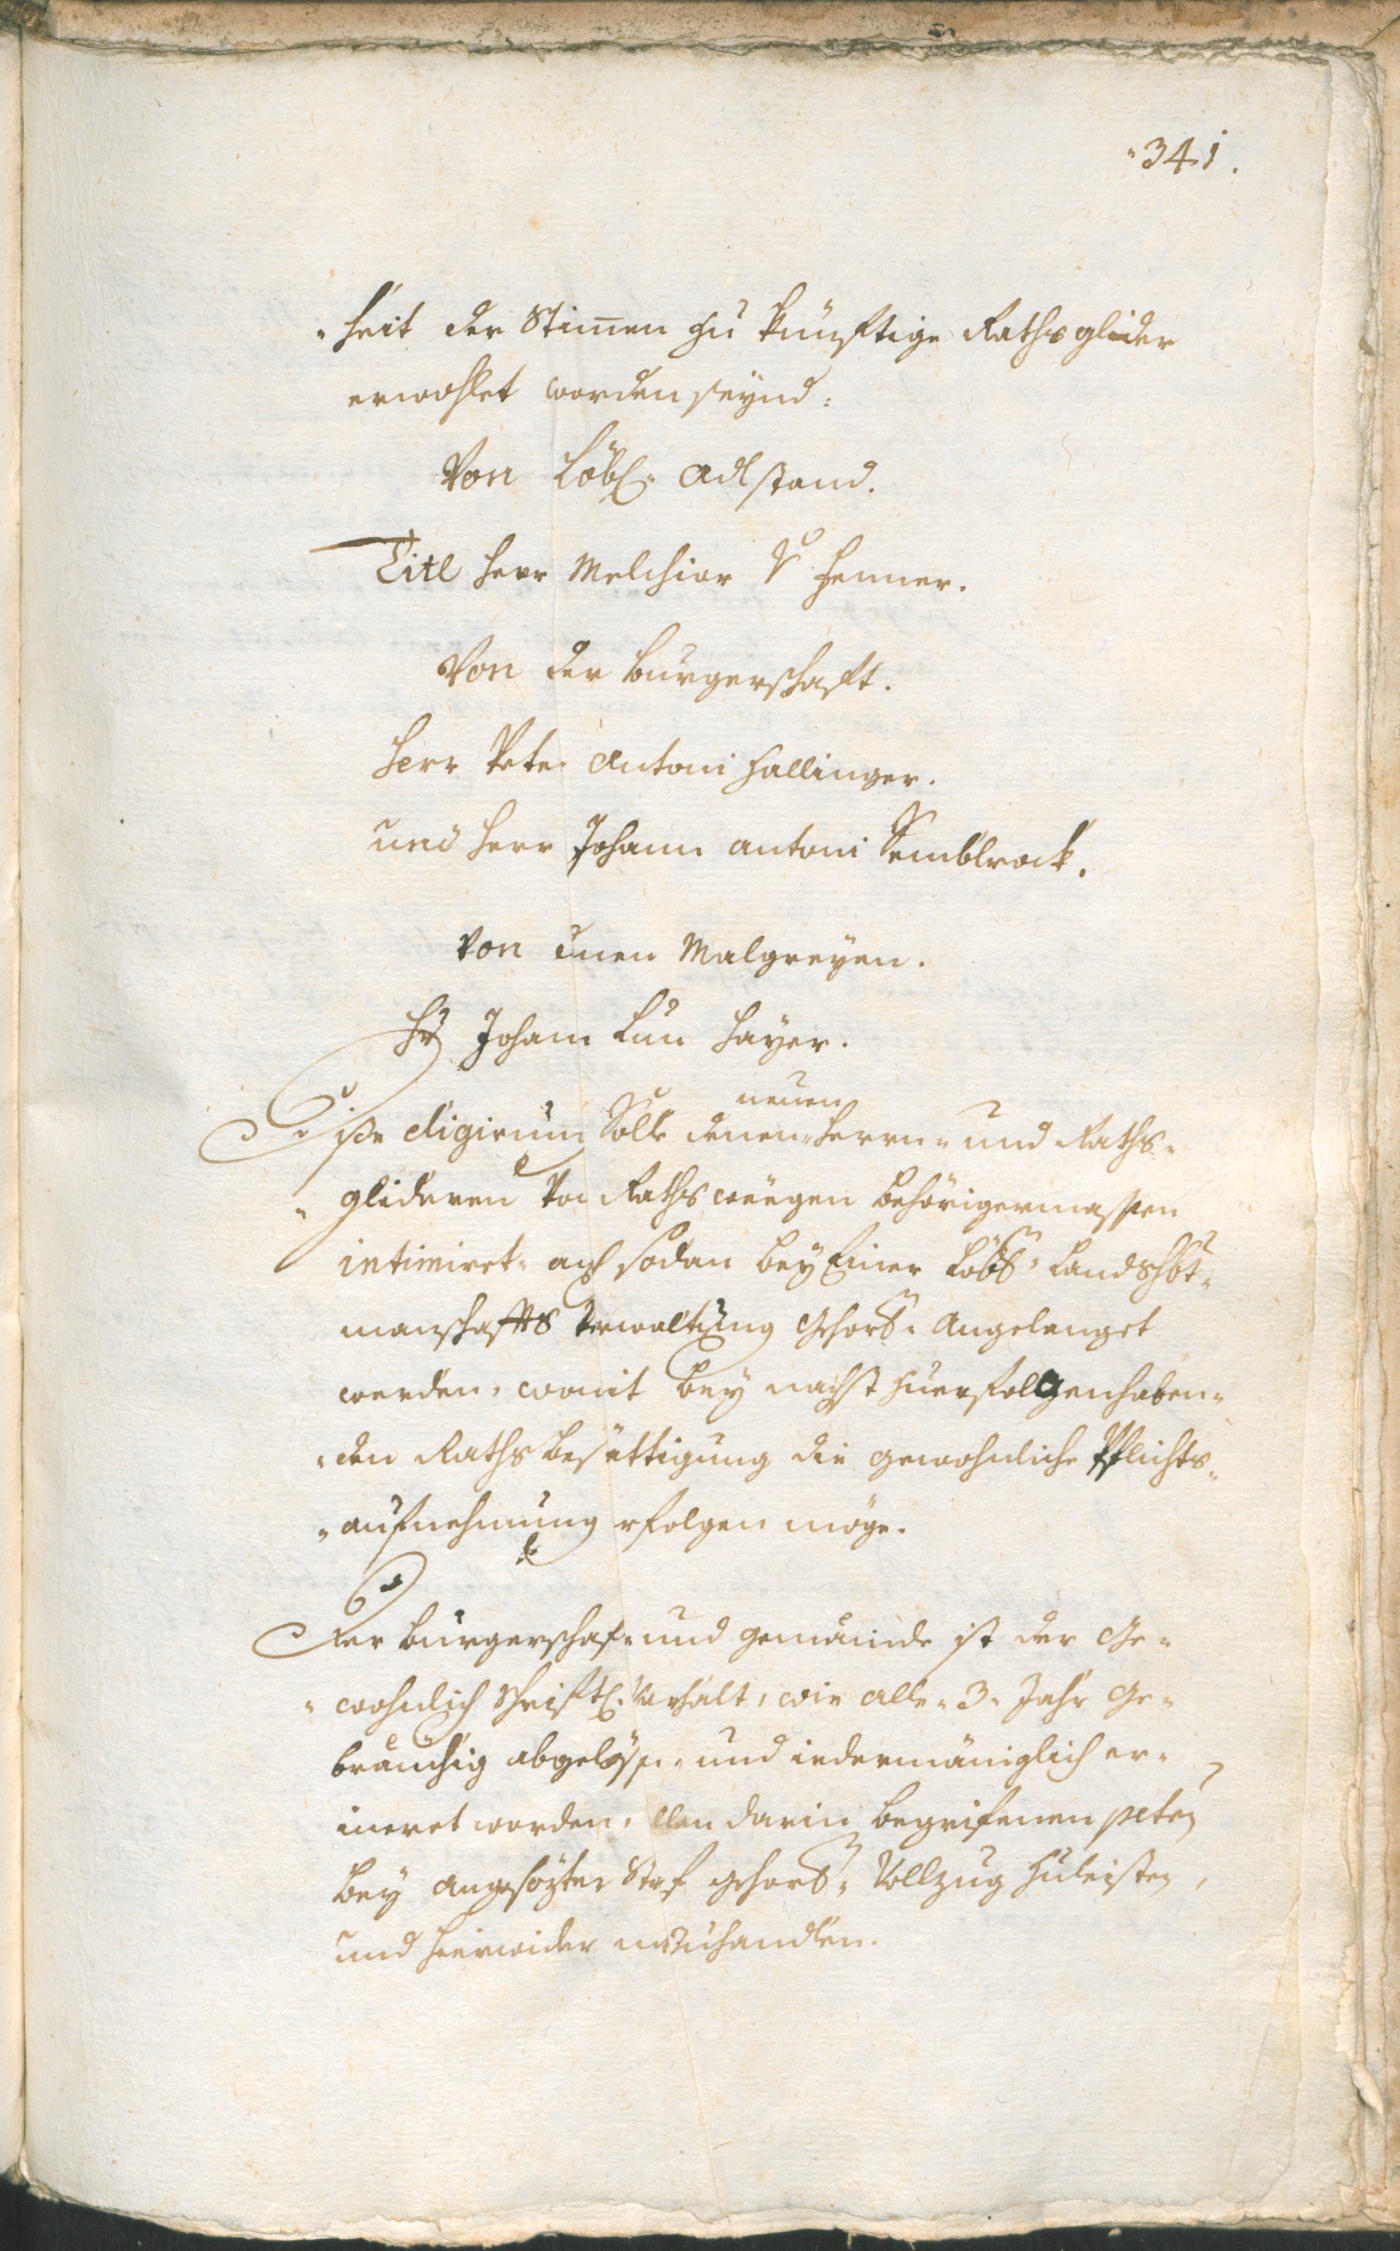 341.
heit der Stimen zu künftige Rathsglider
erwohlet worden seynd:
Von Löbl: Adlstand.
Titl Herr Melchior v Henner.
Von der Burgerschaft.
Herr Peter Antoni Hallinger.
und Herr Johann Antoni Semblrock.
Von denen Malgreyen.
Hr Johann Hayer.
neuen
Dise eligirung Solle denen Herrn- und Raths-
glideren von Raths weegen behörigermassen
intimirt- auch sodan bey Einer Löbl: Landshbt-
manschaffts Verwaltung gehorß: Angelanget
werden, womit bey nachst zuerfolgenhaben-
den Raths Besättigung die gewohnliche Pflichts-
aufnehmung erfolgen möge.
Der Burgerschaf- und gemainde ist der Ge-
wohnlich schriftl: Vorhalt, wie alle 3. Jahr Ge-
bräuchig abgelösen- und iedermäniglich er-
ineret worden, allen darin begrifenen pcten
bey angesözter Straf gehorß: Vollzug zuleisten,
und hierwider nit zuhandlen.